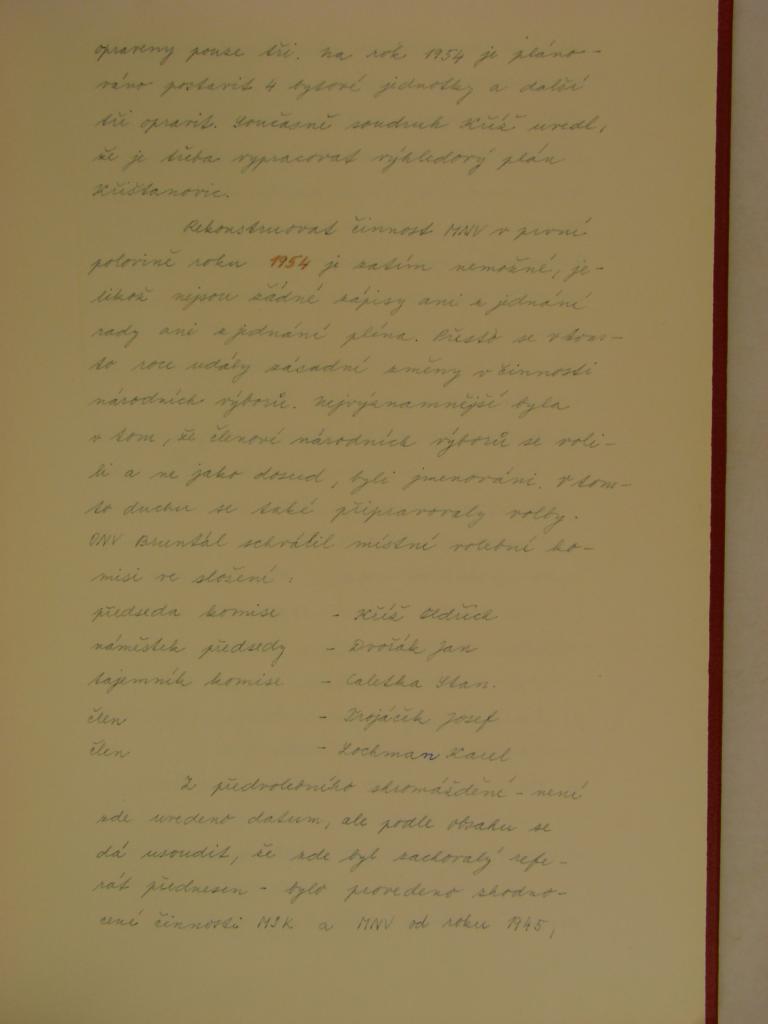 opraveny pouze tři. Na rok 1954 je pláno-
váno postavit 4 bytové jednotky a další
tři opravit. Současně soudruh Kříž uvedl,
že je třeba vypracovat výhledový plán
Křišťanovic.
Rekonstruovat činnost MNV v první
polovině roku 1954 je zatím nemožné, je-
likož nejsou žádné zápisy ani z jednání
rady ani z jednání pléna. Přesto se v tom-
to roce udály zásadní změny v činnosti
národních výborů. Nejvýznamnější byla
v tom, že členové národních výborů se voli-
li a ne jako dosud, byli jmenováni. V tom-
to duchu se také připravovaly volby.
ONV Bruntál schválil místní volební ko-
misi ve složení:
předseda komise - Kříž Oldřich
náměstek předsedy - Dvořák Jan
tajemník komise - Caletka Stan.
člen - Trojáčík Josef
člen - Lochman Karel
Z předvolebního shromáždění - není
zde uvedeno datum, ale podle obsahu se
dá usoudit, že zde byl zachovalý refe-
rát přednesen - bylo provedeno zhodno-
cení činnosti MSK a MNV od roku 1945,